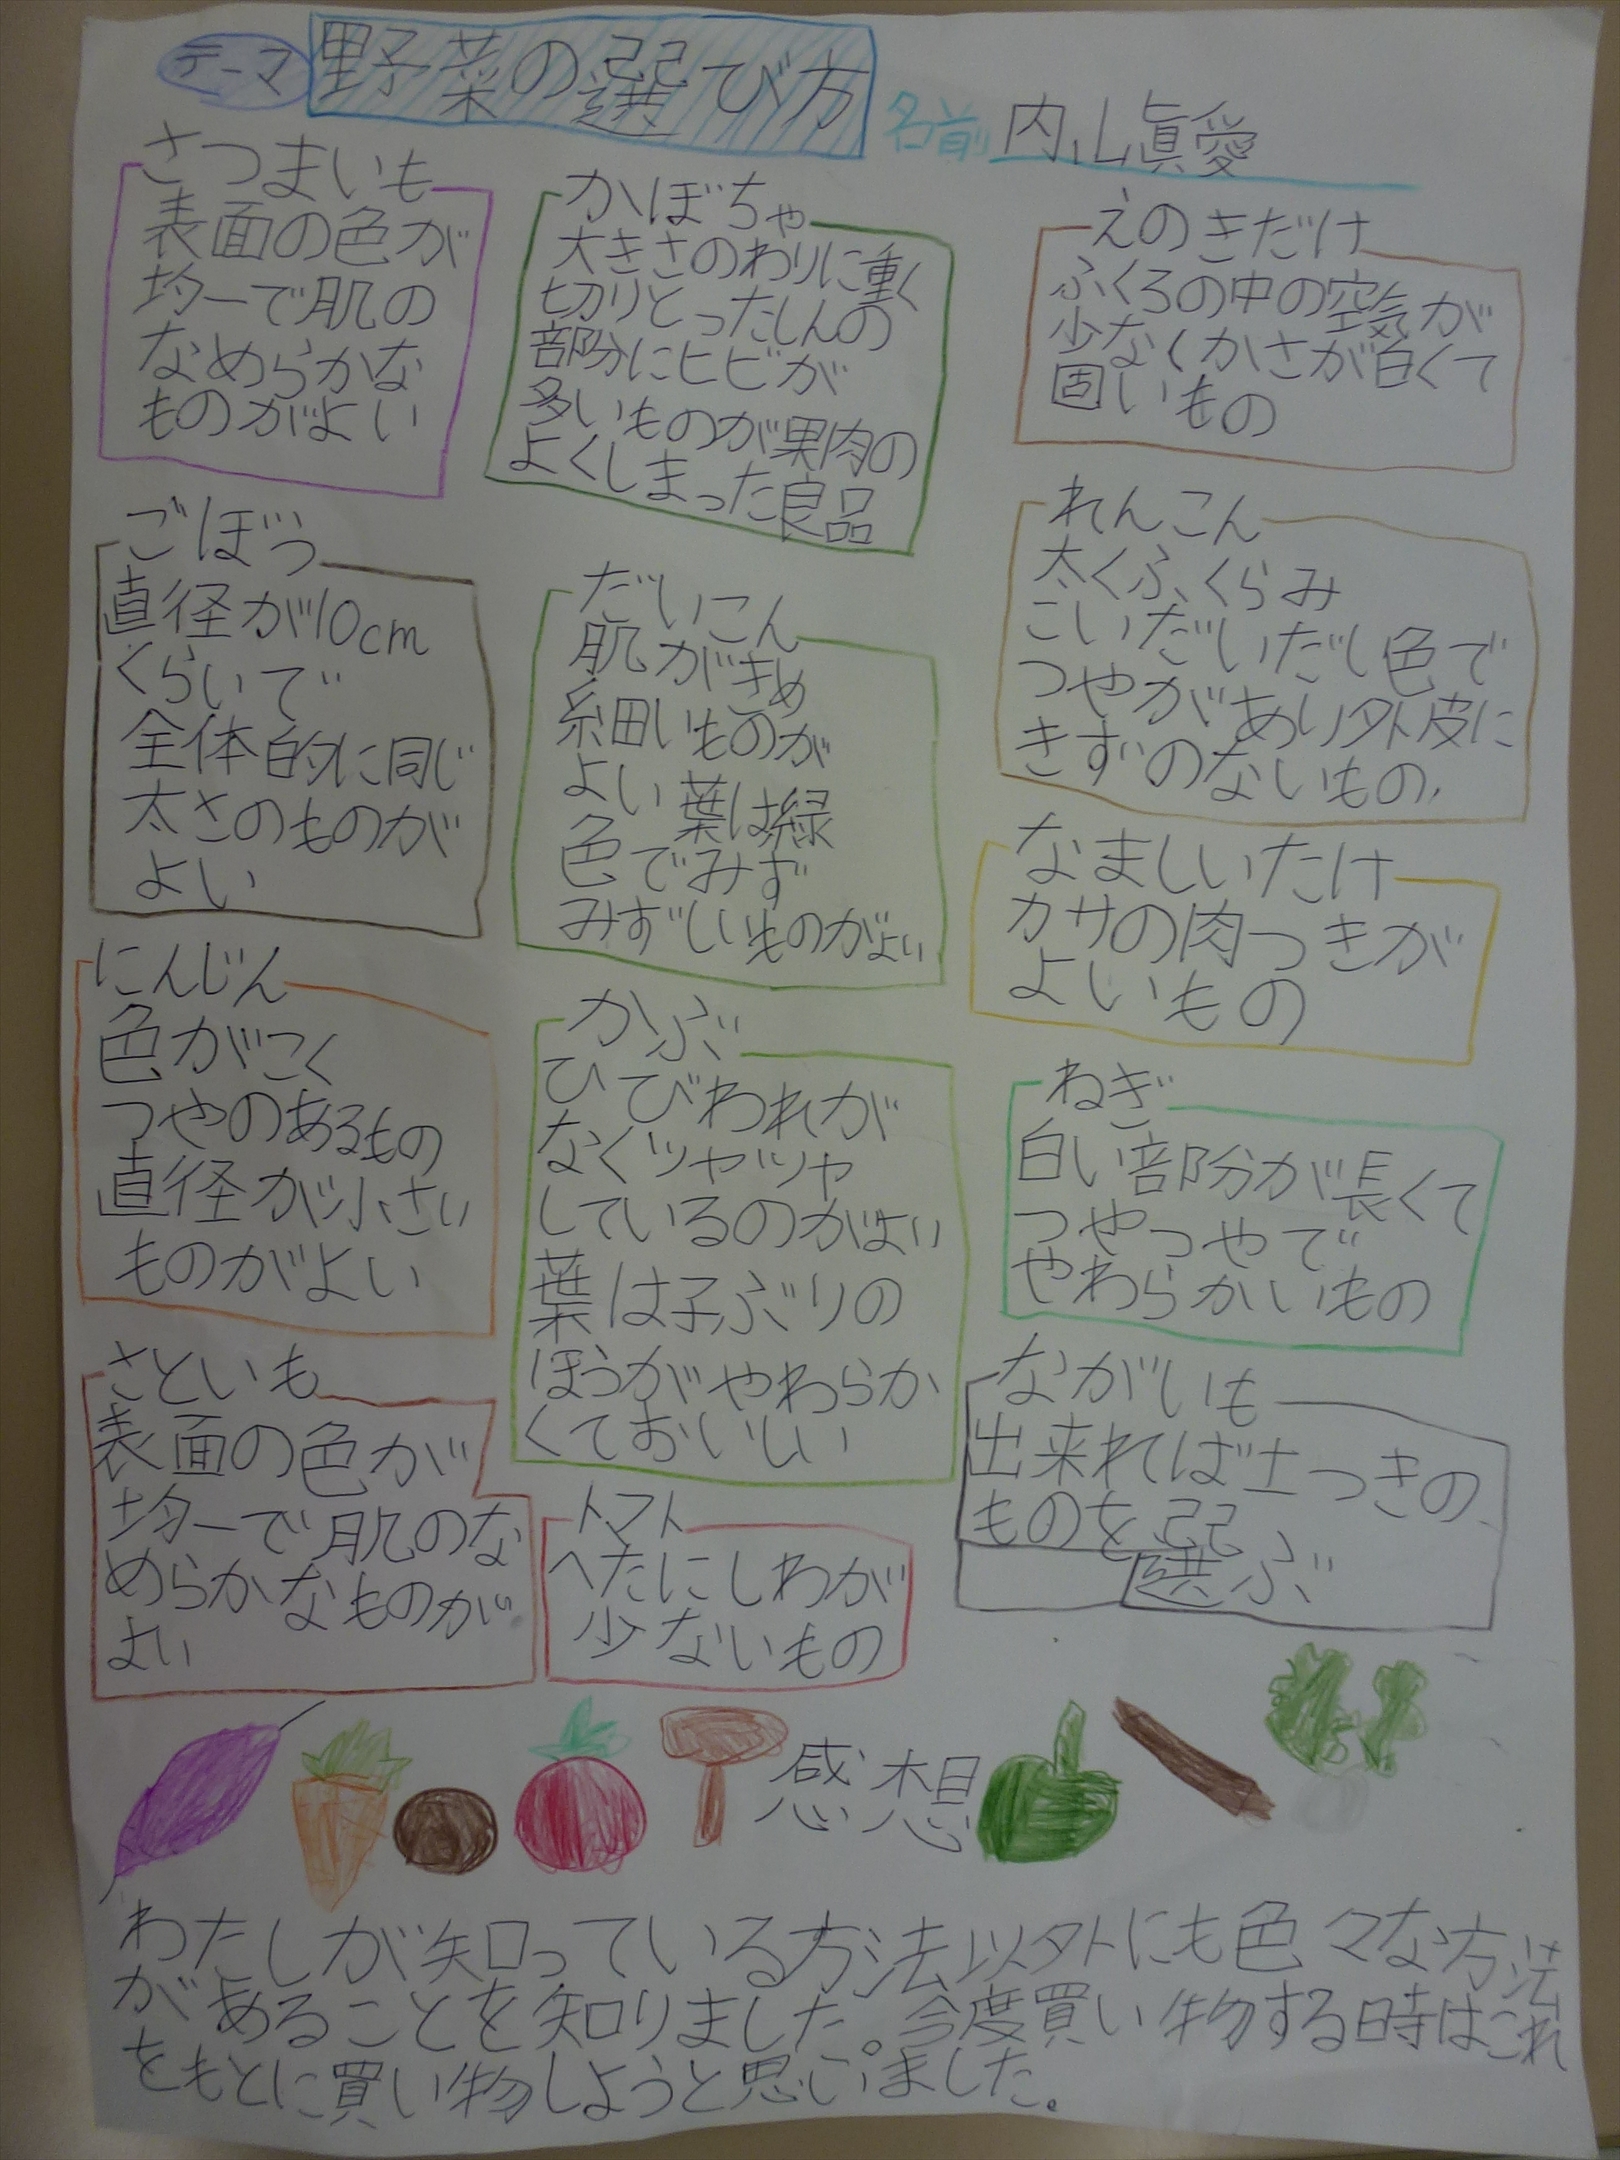 テーマ 野菜の選び方
名前 内山眞愛
さつまいも
表面の色が
均一で肌の
なめらかな
ものがよい
ごぼう
直径が10cm
くらいで
全体的に同じ
太さのものが
よい
にんじん
色がこく
つやのあるもの
直径が小さい
ものがよい
さといも
表面の色が
均一で肌のな
めらかなものが
よい
かぼちゃ
大きさのわりに重く
切りとったしんの
部分にヒビが
多いものが果肉の
よくしまった良品
だいこん
肌がきめ
細いものが
よい葉は緑
色でみず
みずしいものがよい
かぶ
ひびわれが
なくツヤツヤ
しているのがよい
葉は子ぶりの
ほうがやわらか
くておいしい
トマト
へたにしわが
少ないもの
えのきだけ
ふくろの中の空気が
少なくかさが白くて
固いもの
れんこん
太くふくらみ
こいだいだし色で
つやがあり外皮に
きずのないもの
なましいたけ
カサの肉つきが
よいもの
ねぎ
白い部分が長くて
つやつやで
やわらかいもの
ながいも
出来れば土つきの
ものを選ぶ
感想
わたしが知っている方法以外にも色々な方法
があることを知りました。今度買い物する時はこれ
をもとに買い物しようと思いました。